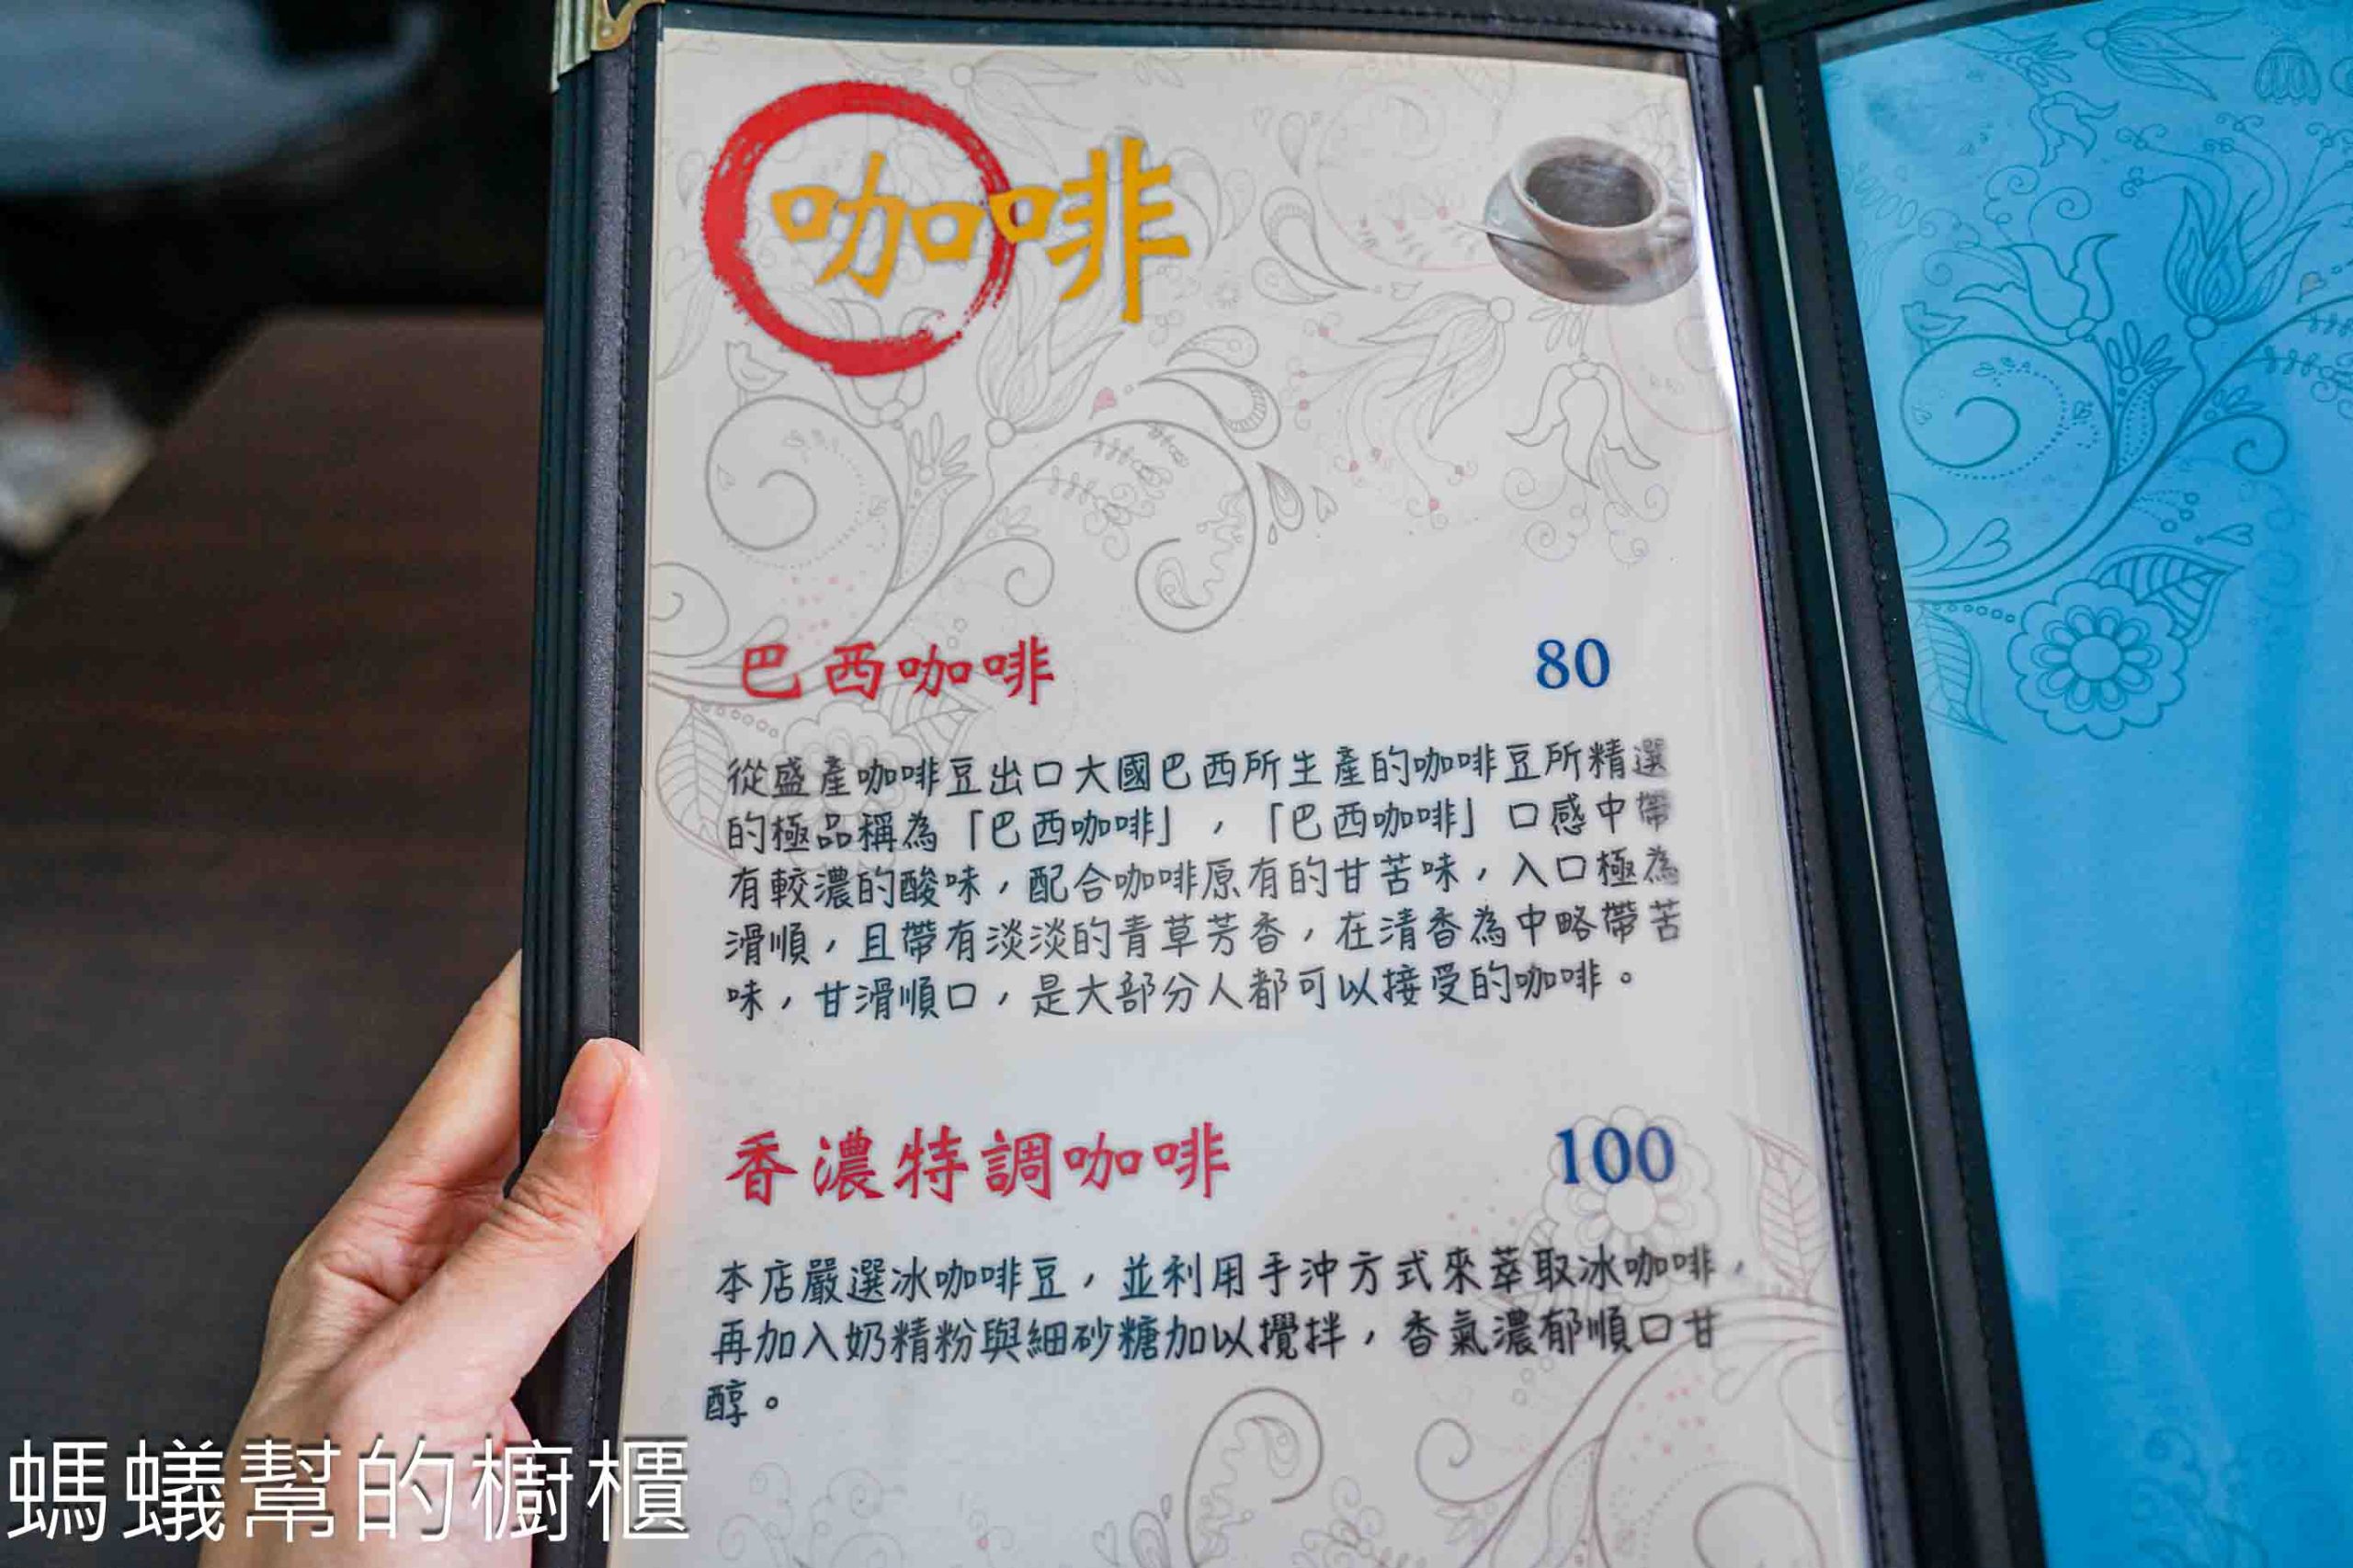 咖啡
巴西咖啡 80
從盛產咖啡豆出口大國巴西所生產的咖啡豆所精選
的極品稱為「巴西咖啡」，「巴西咖啡」口感中帶
有較濃的酸味，配合咖啡原有的甘苦味，入口極為
滑順，且帶有淡淡的青草芳香，在清香為中略帶苦
味，甘滑順口，是大部分人都可以接受的咖啡。
香濃特調咖啡 100
本店嚴選冰咖啡豆，並利用手沖方式來萃取冰咖啡，
再加入奶精粉與細砂糖加以攪拌，香氣濃郁順口甘
醇。
螞蟻幫的櫥櫃